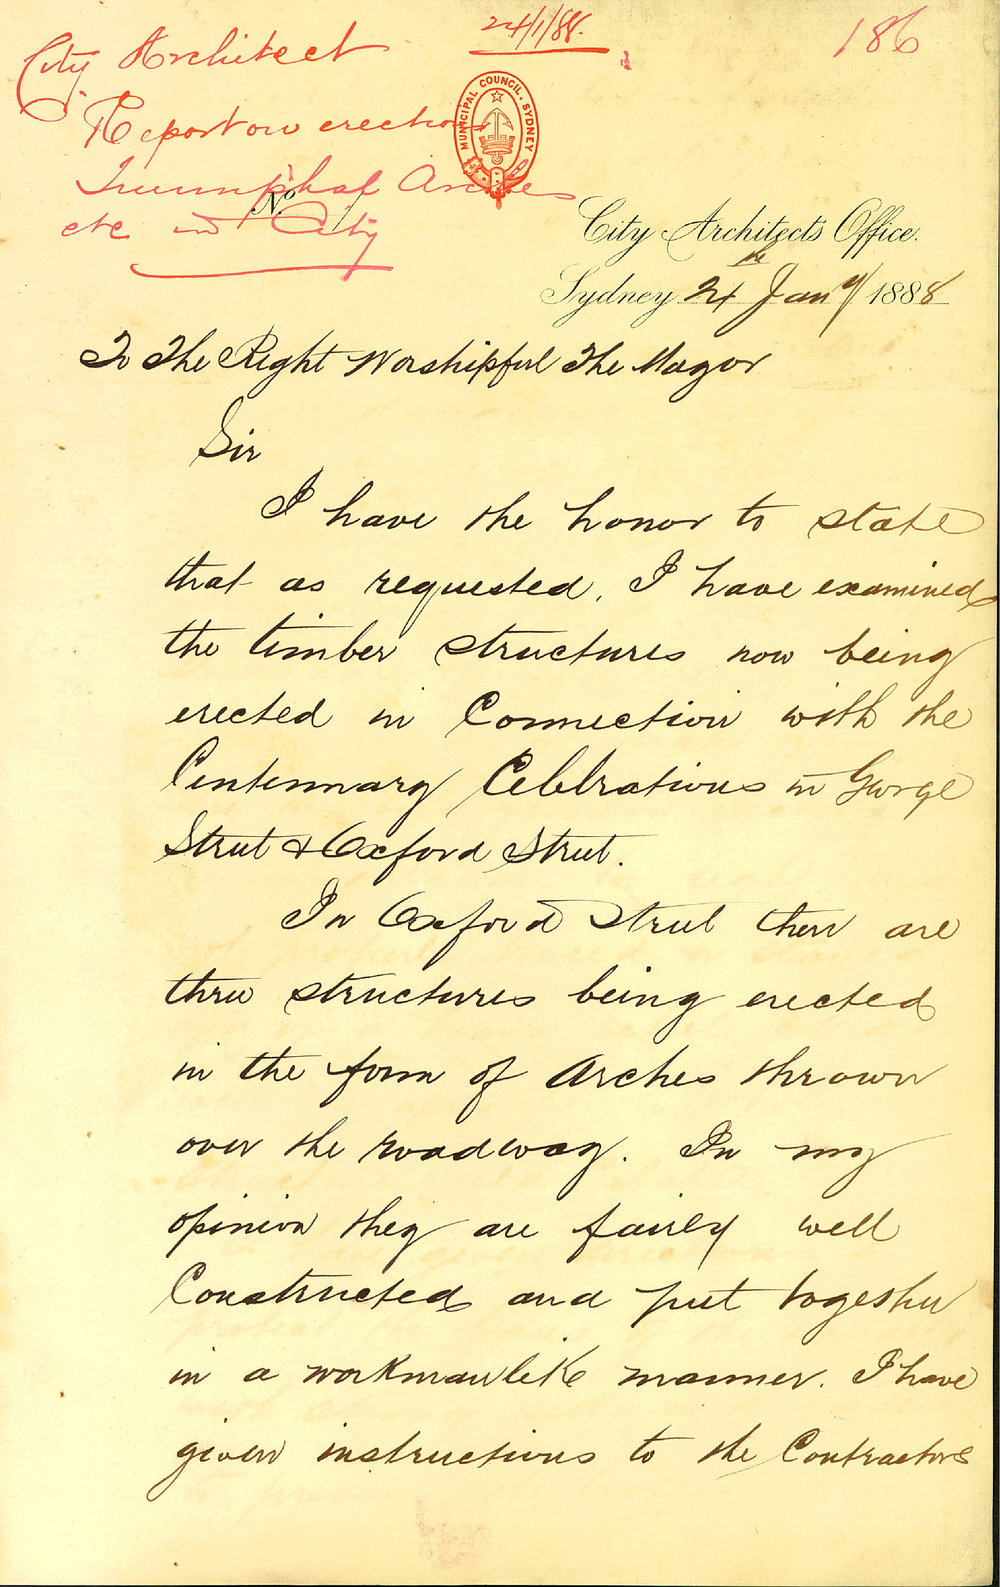 24/1/88.
186
City Architect
Report on erection
Triumphal Arches
etc in City
MUNICIPAL COUNCIL. SYDNEY
No.
City Architects Office.
Sydney 24th Jany 1888
To The Right Worshipful The Mayor
Sir
I have the honor to state
that as requested, I have examined
the timber structures now being
erected in Connection with the
Centennary Celebrations in George
Street & Oxford Street.
In Oxford Street there are
three structures being erected
in the form of Arches thrown
over the roadway. In my
opinion they are fairly well
Constructed and put together
in a workmanlike manner. I have
given instructions to the Contractors